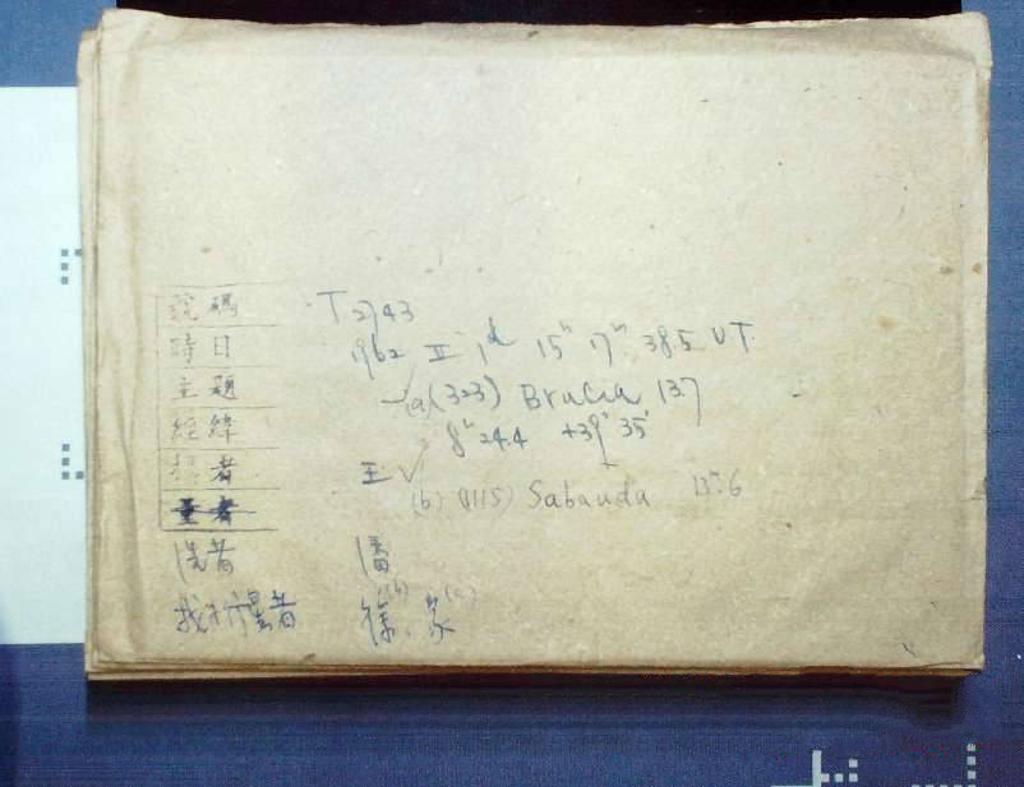 號碼 T2743
時日 1962 II 1d 15h 17m 38.5 UT.
主題 (a) (323) Brucia 13.7
經緯 8h 24.4 +39° 35'
者 王 ✓
(b) (1115) Sabauda 13.6
量者
洗者 潘
找行星者 徐(b)、家(a)